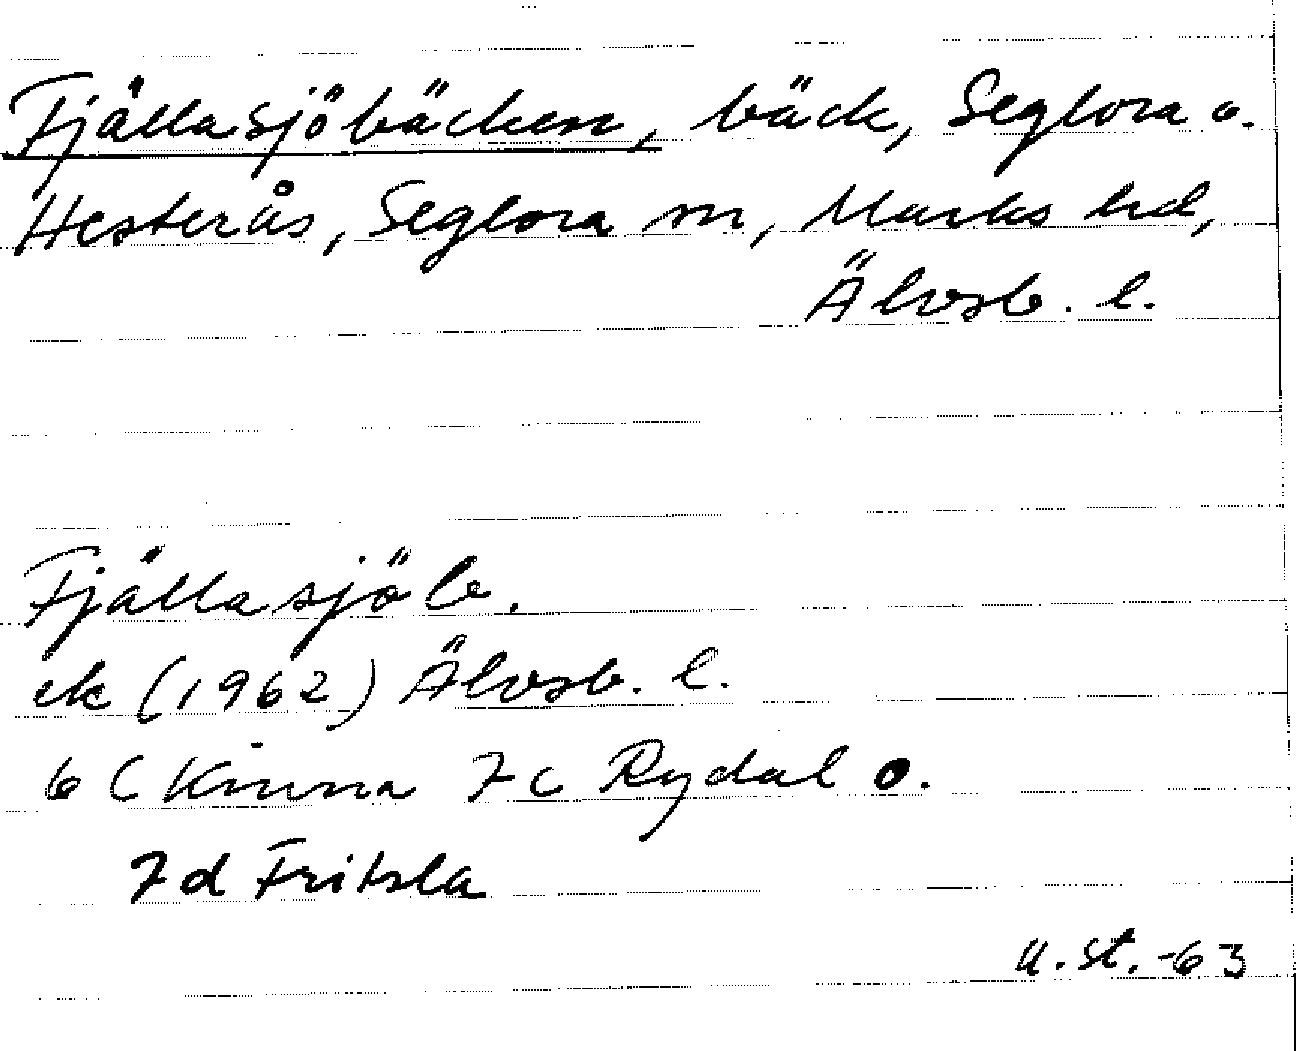 Fjällasjöbäcken, bäck, Seglora o.
Hesterås, Seglora sn, Marks hd,
Älvsb. l.
Fjällasjöb.
ek (1962) Älvsb. l.
6 C Kinna 7 c Rydal o.
7 d Fritsla
U. St. -63